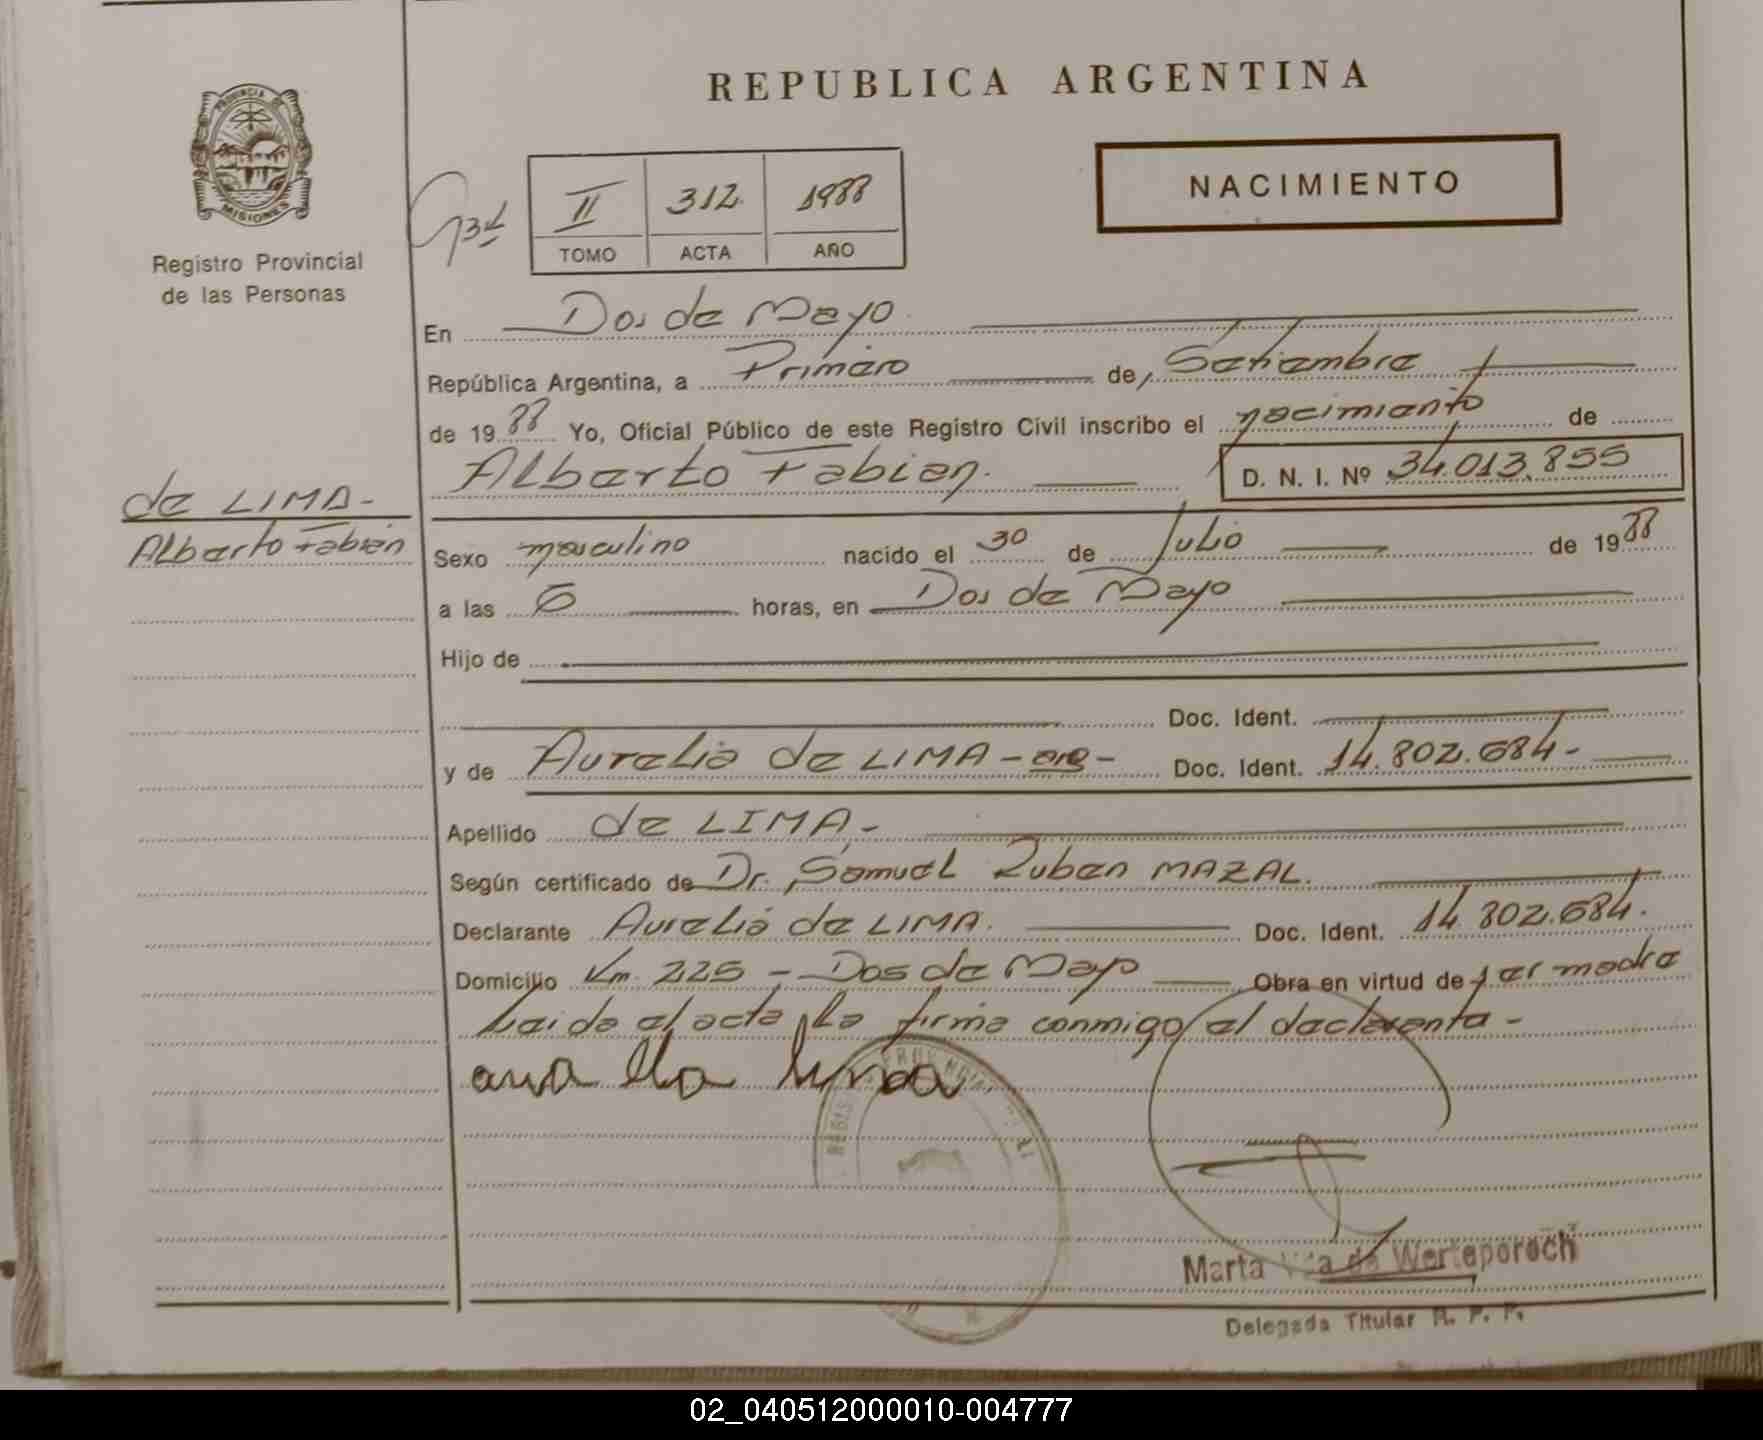 REPUBLICA ARGENTINA
PROVINCIA DE
MISIONES
Registro Provincial
de las Personas
II 312 1988
TOMO ACTA AÑO
NACIMIENTO
En Dos de Mayo
República Argentina, a Primero de Setiembre
de 1988 Yo, Oficial Público de este Registro Civil inscribo el nacimiento de
Alberto Fabian. D. N. I. Nº 34.013.855
de LIMA-
Alberto Fabian
Sexo masculino nacido el 30 de Julio de 1988
a las 6 horas, en Dos de Mayo
Hijo de
Doc. Ident.
y de Aurelia de LIMA - - Doc. Ident. 14.802.684-
Apellido de LIMA-
Según certificado de Dr. Samuel Ruben MAZAL.
Declarante Aurelia de LIMA. Doc. Ident. 14.802.684.
Domicilio Km. 225 - Dos de Mayo Obra en virtud de ser madre
Leida el acta, la firma conmigo el declarante-
Marta de Werteporoch
Delegada Titular R. P. P.
02_040512000010-004777